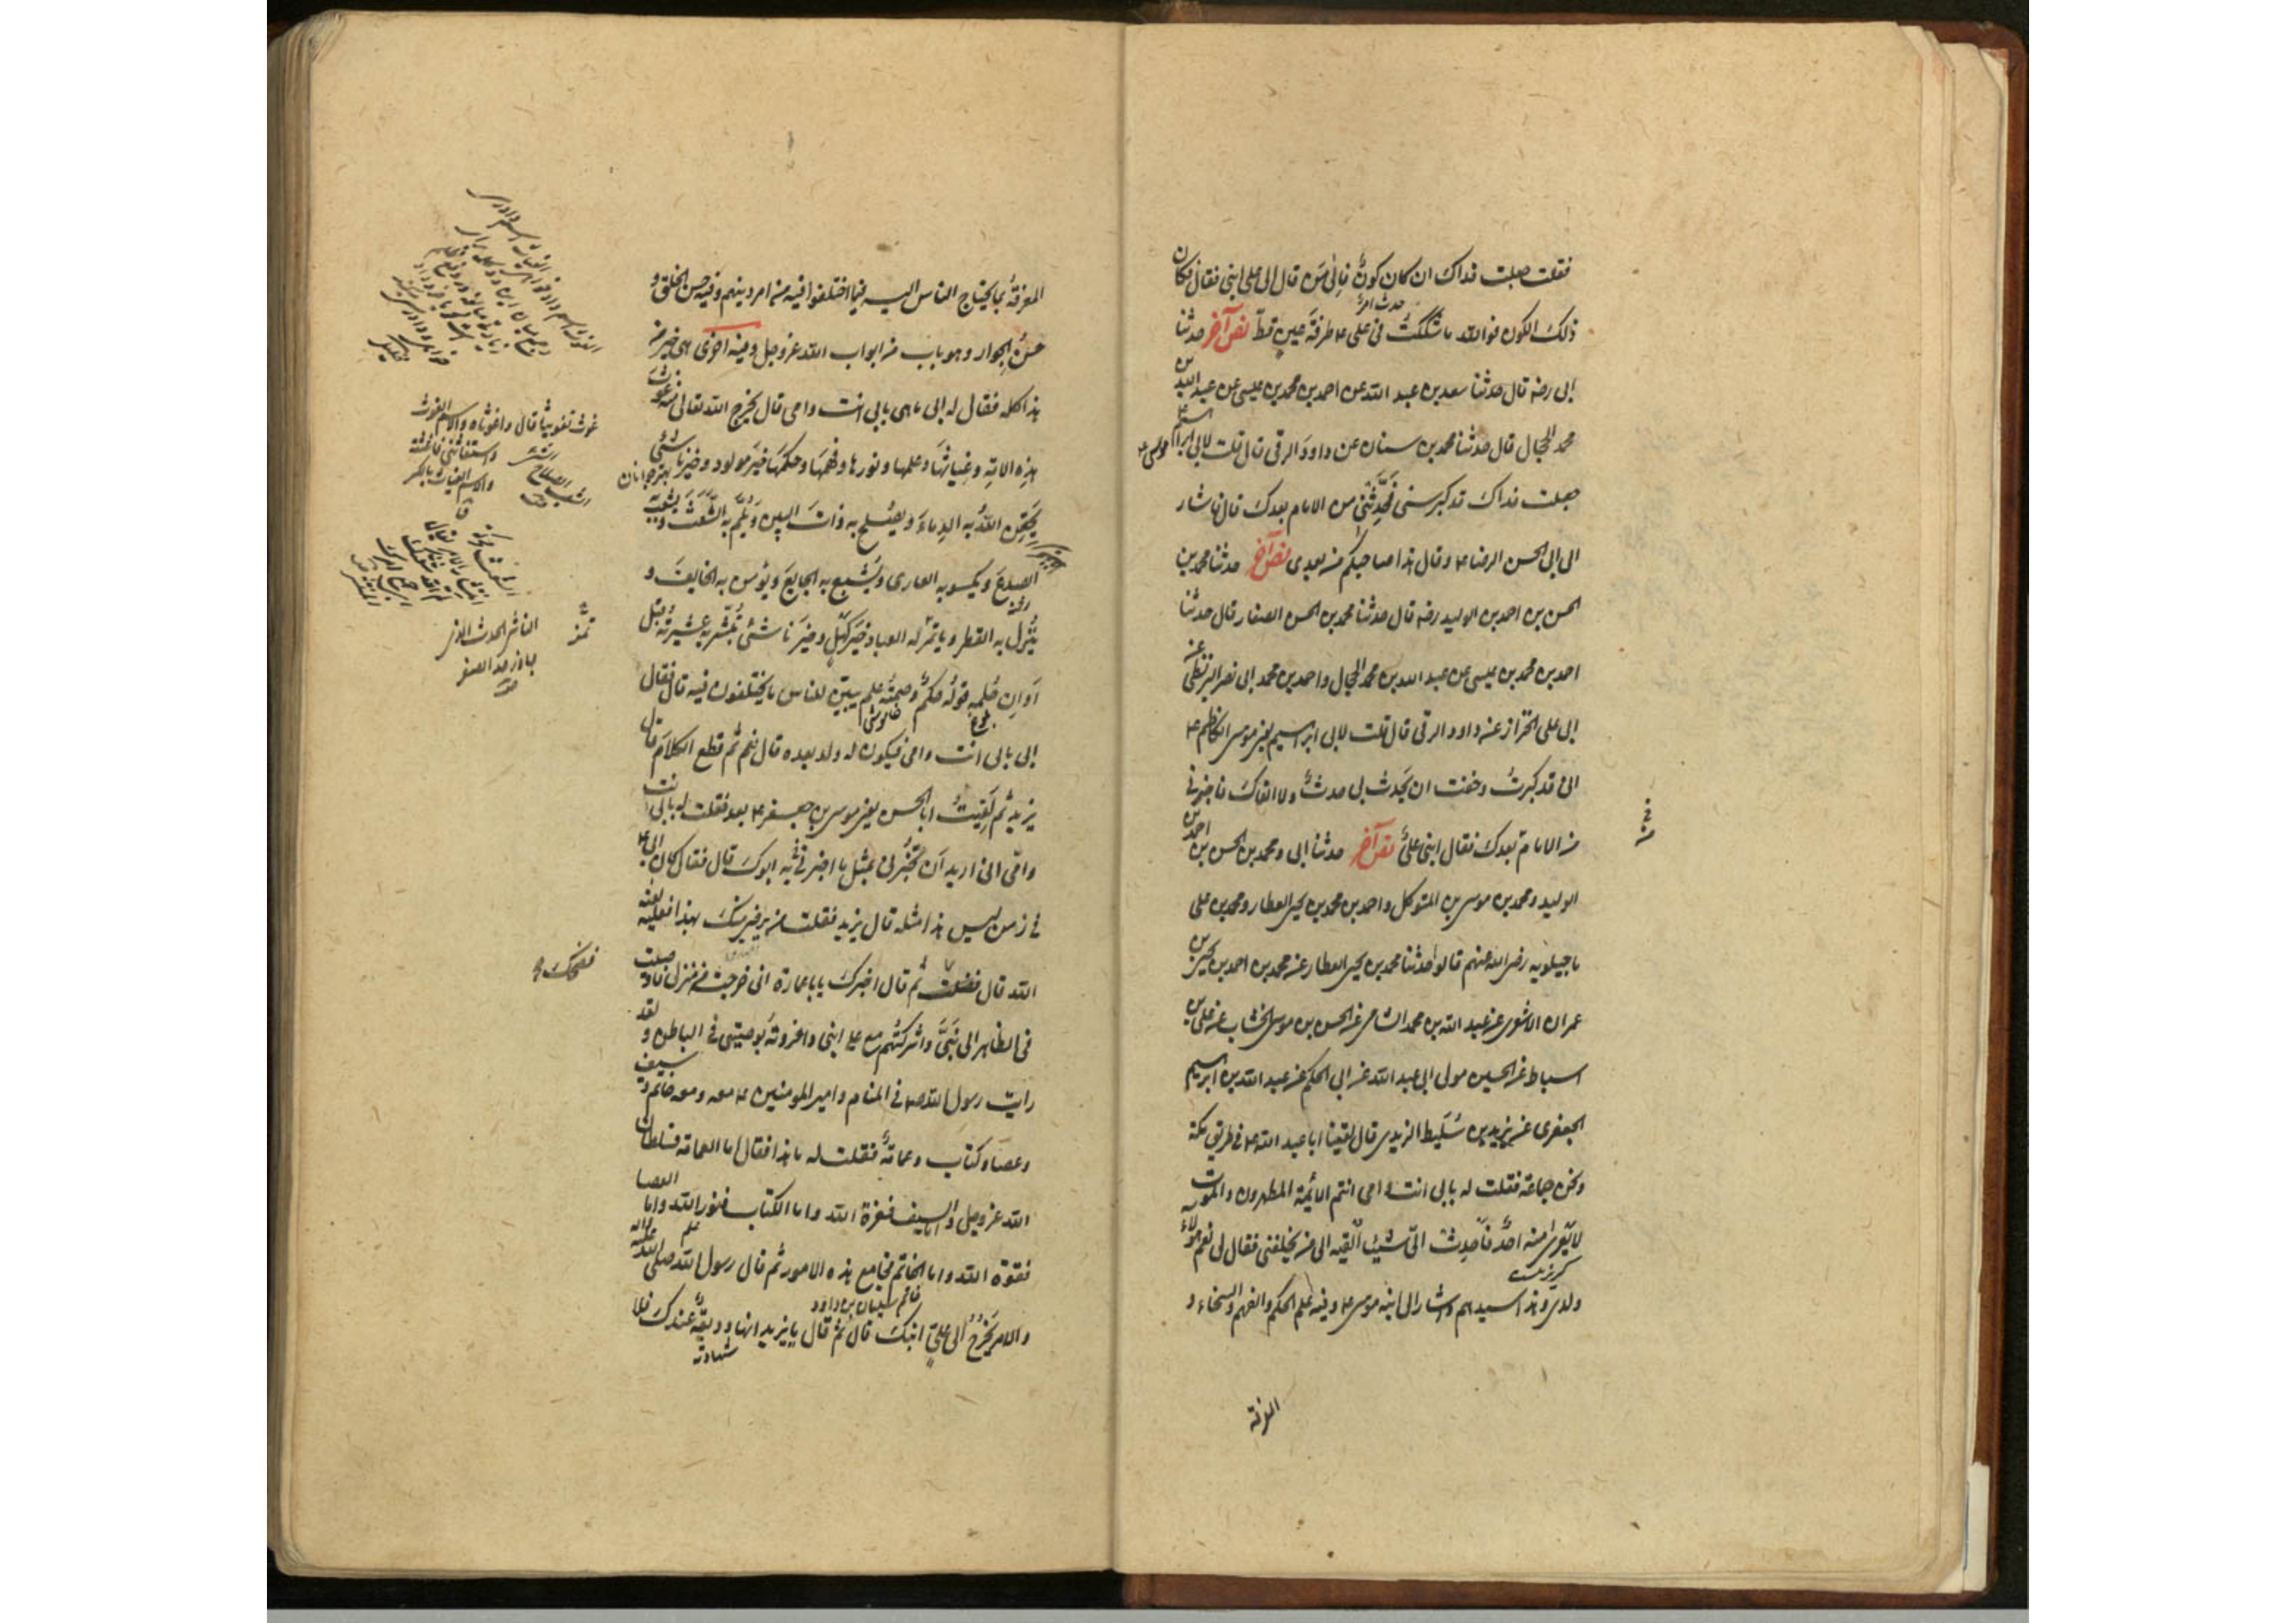 فقلت جعلت فداك ان كان كونٌ فالى من قال الى على ابنى فقال فكان
ذلك الكون فوالله ما شككتُ فى على ع طرفة عينٍ قطّ نص آخر حدثنا
ابى رضه قال حدثنا سعد بن عبد الله عن احمد بن محمد بن عيسى عن عبد الله بن
محمد الحجال قال حدثنا محمد بن سنان عن داود الرقى قال قلت لابى ابراهيم موسى ع
جعلت فداك قد كبر سنى فحدِّثنى من الامام بعدك قال فاشار
الى ابى الحسن الرضا ع وقال هذا صاحبكم من بعدى نص آخر حدثنا محمد بن
الحسن بن احمد بن الوليد رضه قال حدثنا محمد بن الحسن الصفار قال حدثنا
احمد بن محمد بن عيسى عن عبد الله بن محمد الحجال واحمد بن محمد ابى نصر البزنطى عن
ابى على الخزاز عن داود الرقى قال قلت لابى ابراهيم يعنى موسى الكاظم ع
انى قد كبرتُ وخفت ان يَحدث بى حدثٌ ولا القاك فاخبرنى
من الامام بعدك فقال ابنى علىٌّ نص آخر حدثنا ابى ومحمد بن الحسن بن احمد بن
الوليد ومحمد بن موسى بن المتوكل واحمد بن محمد بن يحيى العطار ومحمد بن على
ماجيلويه رضى الله عنهم قالوا حدثنا محمد بن يحيى العطار عن محمد بن احمد بن يحيى بن
عمران الاشعرى عن عبد الله بن محمد الشامى عن الحسن بن موسى الخشاب عن على بن
اسباط عن الحسين مولى ابى عبد الله عن ابى الحكم عن عبد الله بن ابراهيم
الجعفرى عن يزيد بن سَليط الزيدى قال لقينا ابا عبد الله ع فى طريق مكة
ونحن جماعة فقلت له بابى انت وامى انتم الائمة المطهرون والموت
لا يعرى منه احدٌ فاحدِث الىّ شيئا اُلقيه الى من يخلفنى فقال لى نعم هؤلاء
ولدى وهذا سيدهم واشار الى ابنه موسى ع وفيه علم الحكم والفهم والسخاء و
المعرفة
المعرفةُ بما يحتاج الناس اليه فيما اختلفوا فيه من امر دينهم وفيه حسن الخلق و
حسنُ الجوار وهو باب من ابواب الله عز وجل وفيه اخرى هى خير من
هذا كله فقال له ابى ما هى بابى انت وامى قال يخرج الله تعالى منه غوث
هذه الامّةِ وغياثَها وعلمها ونورها وفهمَها وحكمَها خير مولود وخير ناشئ
يَحقِن اللهُ به الدماءَ ويُصلح به ذاتَ البين ويلمّ به الشَّعَث ويشعب به
الصدعَ ويكسو به العارى ويُشبع به الجايعَ ويؤمن به الخايفَ و
يُنزل به القطر وياتمر له العباد خيرَ كهلٍ وخيرَ ناشئ يُبشّر به عشيرته قبل
اَوانِ حُلمهِ قولُه حكمٌ وصمتُه علم يبيّن للناس ما يختلفون فيه قال فقال
ابى بابى انت وامى فيكون له ولد بعده قال نعم ثم قطع الكلام قال
يزيد ثم لَقيتُ ابا الحسن يعنى موسى بن جعفر ع بعد فقلت له بابى انت
وامّى انى اريد اَن تُخبرنى بمثل ما اخبرنى به ابوكَ قال فقال كان ابى ع
فى زمن ليس هذا مثله قال يزيد فقلت من يرضى منك بهذا فعليه لعنة
الله قال فضحك ثم قال اخبرك يا با عمارة انى خرجت من منزلى فاوصيت
فى الظاهر الى بَنىَّ واشركتُهم مع على ابنى وافردتُه بوصيتى فى الباطن ولقد
رايت رسول الله ص فى المنام وامير المومنين ع معه ومعه خاتم وسيف
وعصا وكتاب وعمامةٌ فقلت له ما هذا فقال اما العمامة فسلطان
الله عز وجل واما السيف فعزة الله واما الكتاب فنور الله واما العصا
فقوّة الله واما الخاتم فجامع هذه الامور ثم قال رسول الله صلى الله عليه واله
والامر يَخرُجُ الى علىٍّ ابنك قال ثم قال يا يزيد انها وديعةٌ عندك فلا
غوث تغويثا قال واغوثاه والاسم الغوث
واستغاثنى فاغثته
والاسم الغياث بالكسر
الناشئ الحدث الذى
جاوز حد الصغر
فضحك